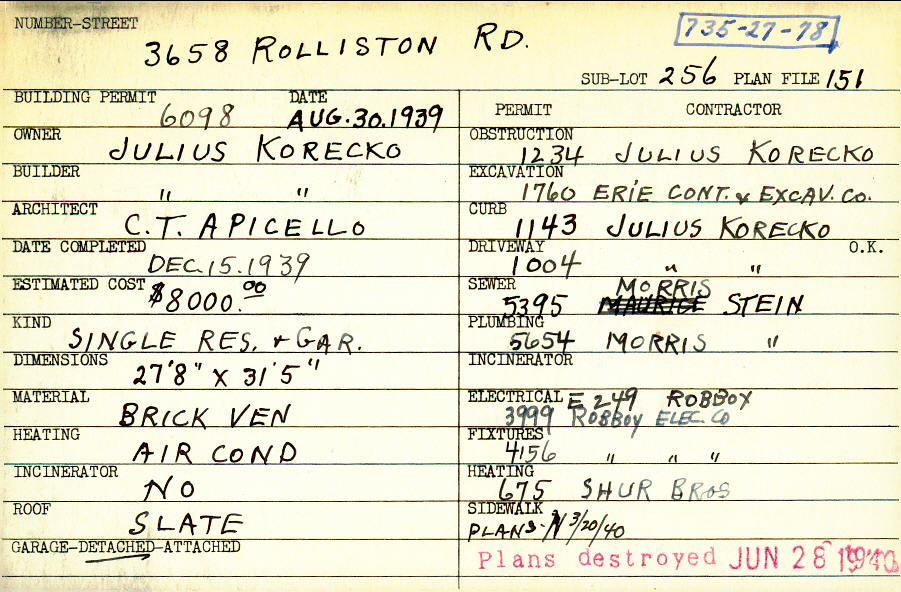 NUMBER-STREET
3658 ROLLISTON RD.
735-27-78
SUB-LOT 256 PLAN FILE 151
BUILDING PERMIT DATE
6098 AUG.30.1939
OWNER
JULIUS KORECKO
BUILDER
" "
ARCHITECT
C.T. APICELLO
DATE COMPLETED
DEC.15.1939
ESTIMATED COST
$8000.00
KIND
SINGLE RES. + GAR.
DIMENSIONS
27'8" X 31'5"
MATERIAL
BRICK VEN
HEATING
AIR COND
INCINERATOR
NO
ROOF
SLATE
GARAGE-DETACHED-ATTACHED
PERMIT CONTRACTOR
OBSTRUCTION
1234 JULIUS KORECKO
EXCAVATION
1760 ERIE CONT. & EXCAV. CO.
CURB
1143 JULIUS KORECKO
DRIVEWAY O.K.
1004 " "
SEWER MORRIS
5395 MAURICE STEIN
PLUMBING
5654 MORRIS "
INCINERATOR
ELECTRICAL E 249 ROBBOY
3999 ROBBOY ELEC. CO
FIXTURES
4156 " " "
HEATING
675 SHUR BROS
SIDEWALK
PLANS- 3/20/40
Plans destroyed JUN 28 1940